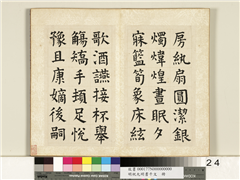 房紈扇圓潔銀
燭煒煌晝眠夕
寐籃筍象床絃
歌酒讌接杯舉
觴矯手頓足悅
豫且康嫡後嗣
24